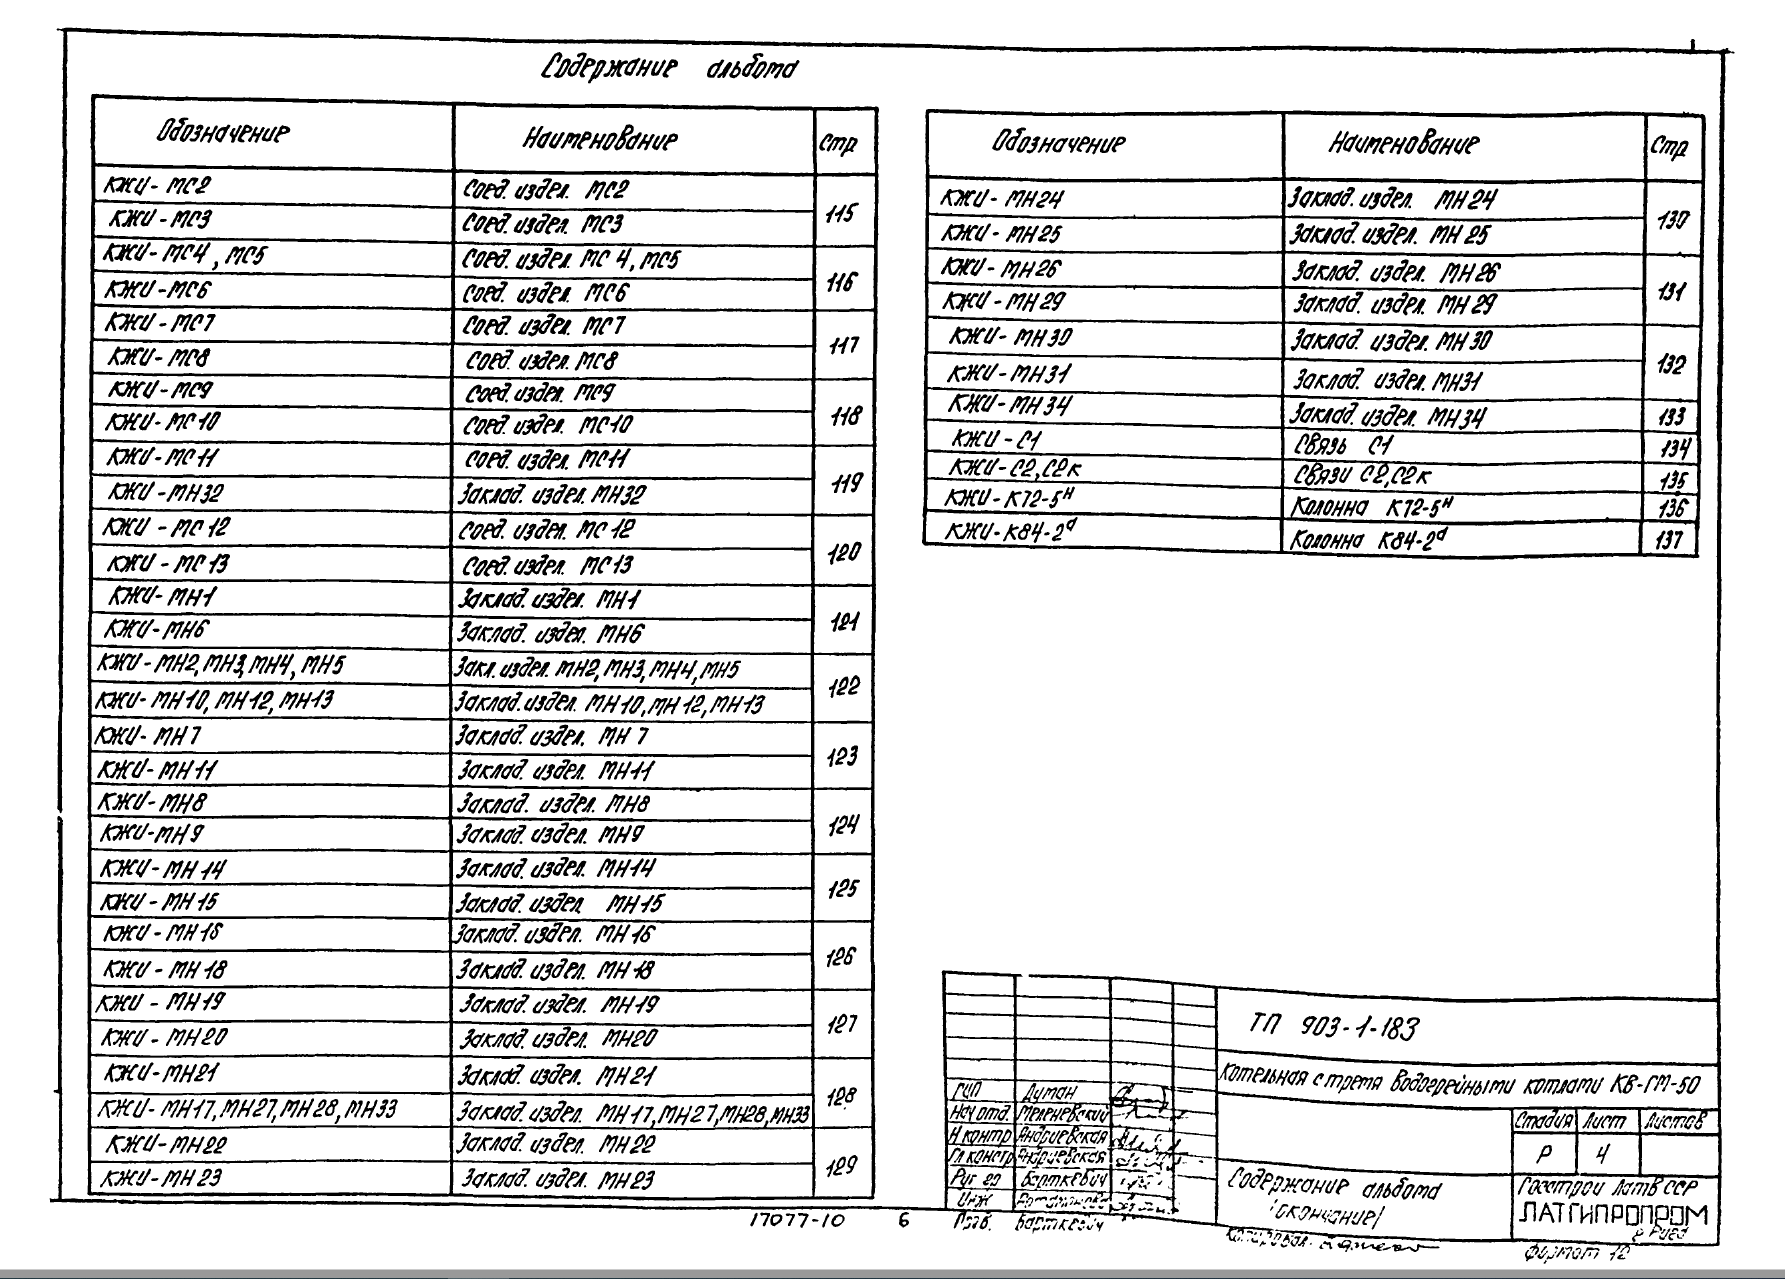 Содержание альбома
Обозначение Наименование Стр
КЖИ-МС2 Соед. издел. МС2 115
КЖИ-МС3 Соед. издел. МС3
КЖИ-МС4, МС5 Соед. издел. МС4, МС5 116
КЖИ-МС6 Соед. издел. МС6
КЖИ-МС7 Соед. издел. МС7 117
КЖИ-МС8 Соед. издел. МС8
КЖИ-МС9 Соед. издел. МС9 118
КЖИ-МС10 Соед. издел. МС10
КЖИ-МС11 Соед. издел. МС11 119
КЖИ-МН32 Заклад. издел. МН32
КЖИ-МС12 Соед. издел. МС12 120
КЖИ-МС13 Соед. издел. МС13
КЖИ-МН1 Заклад. издел. МН1 121
КЖИ-МН6 Заклад. издел. МН6
КЖИ-МН2, МН3, МН4, МН5 Закл. издел. МН2, МН3, МН4, МН5 122
КЖИ-МН10, МН12, МН13 Заклад. издел. МН10, МН12, МН13
КЖИ-МН7 Заклад. издел. МН7 123
КЖИ-МН11 Заклад. издел. МН11
КЖИ-МН8 Заклад. издел. МН8 124
КЖИ-МН9 Заклад. издел. МН9
КЖИ-МН14 Заклад. издел. МН14 125
КЖИ-МН15 Заклад. издел МН15
КЖИ-МН16 Заклад. издел. МН16 126
КЖИ-МН18 Заклад. издел. МН18
КЖИ-МН19 Заклад. издел. МН19 127
КЖИ-МН20 Заклад. издел. МН20
КЖИ-МН21 Заклад. издел. МН21 128
КЖИ-МН17, МН27, МН28, МН33 Заклад. издел. МН17, МН27, МН28, МН33
КЖИ-МН22 Заклад. издел. МН22 129
КЖИ-МН23 Заклад. издел. МН23
Обозначение Наименование Стр
КЖИ-МН24 Заклад. издел. МН24 130
КЖИ-МН25 Заклад. издел. МН25
КЖИ-МН26 Заклад. издел. МН26 131
КЖИ-МН29 Заклад. издел. МН29
КЖИ-МН30 Заклад. издел. МН30 132
КЖИ-МН31 Заклад. издел. МН31
КЖИ-МН34 Заклад. издел. МН34 133
КЖИ-С1 Связь С1 134
КЖИ-С2, С2к Связи С2, С2к 135
КЖИ-К72-5н Колонна К72-5н 136
КЖИ-К84-2д Колонна К84-2д 137
ТП 903-1-183
Котельная с тремя водогрейными котлами КВ-ГМ-50
ГИП Думан
Нач отд. Меленевский
Н контр Андриевская
Гл констр Андриевская
Рук гр Барткевич
Инж
Разб. Барткевич
Стадия Лист Листов
Р 4
Содержание альбома
(окончание)
Госстрой Латв ССР
ЛАТГИПРОПРОМ
г Рига
17077-10 6
Копировал:
Формат 12